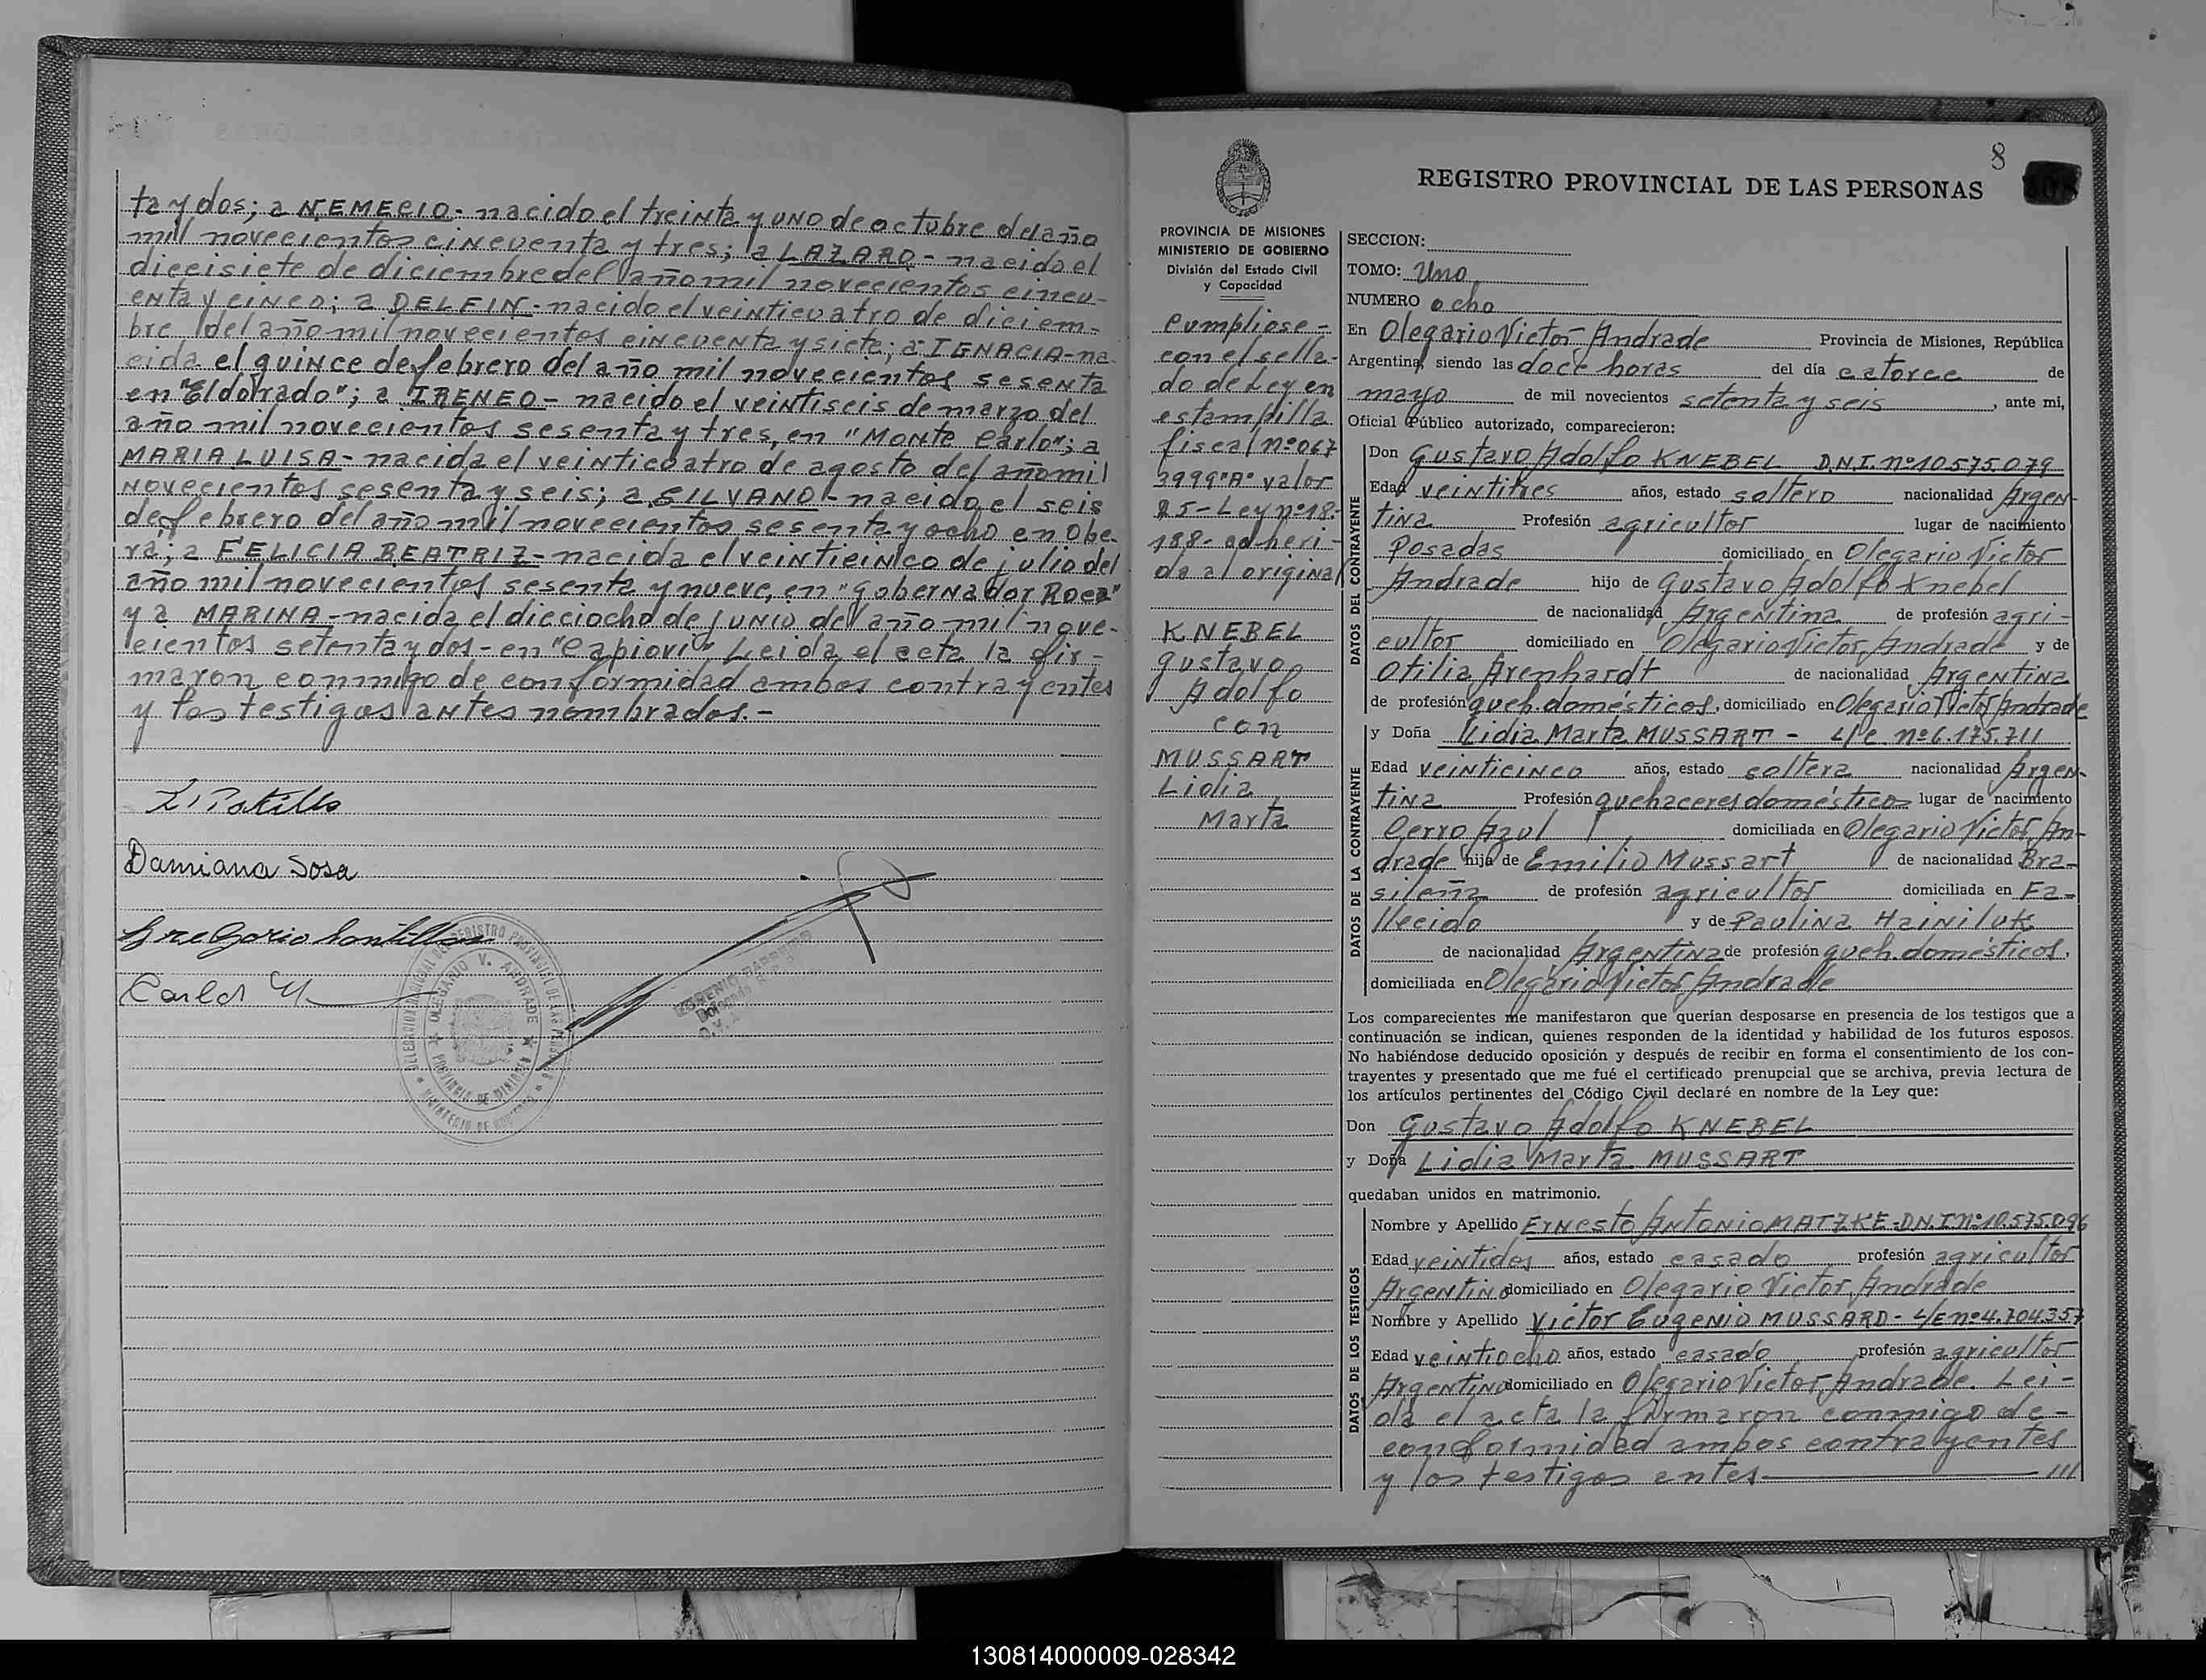 ta y dos; a NEMECIO - nacido el treinta y uno de octubre del año
mil novecientos cincuenta y tres; a LAZARO - nacido el
diecisiete de diciembre del año mil novecientos cincu-
enta y cinco; a DELFIN - nacido el veinticuatro de diciem-
bre del año mil novecientos cincuenta y siete; a IGNACIA - na-
cida el quince de febrero del año mil novecientos sesenta
en "Eldorado"; a IRENEO - nacido el veintiseis de marzo del
año mil novecientos sesenta y tres, en "Monte Carlo"; a
MARIA LUISA - nacida el veinticuatro de agosto del año mil
novecientos sesenta y seis; a SILVANO - nacido el seis
de febrero del año mil novecientos sesenta y ocho en Obe-
rá; a FELICIA BEATRIZ - nacida el veinticinco de julio del
año mil novecientos sesenta y nueve, en "Gobernador Roca"
y a MARINA - nacida el dieciocho de junio del año mil nove-
cientos setenta y dos - en "Capiovi" Leida el acta la fir-
maron conmigo de conformidad ambos contrayentes
y los testigos antes nombrados. -
Damiana Sosa
Gregorio
Carlos
OLEGARIO V. ANDRADE
PROVINCIA DE MISIONES
8
REGISTRO PROVINCIAL DE LAS PERSONAS
PROVINCIA DE MISIONES
MINISTERIO DE GOBIERNO
División del Estado Civil
y Capacidad
Cumpliose -
con el sella-
do de Ley en
estampilla
fiscal nº 067
3999 "A" valor
25 - Ley nº 18.-
188 - adheri-
da al original
KNEBEL
Gustavo
Adolfo
con
MUSSART
Lidia
Marta
SECCION:
TOMO: Uno
NUMERO ocho
En Olegario Victor Andrade Provincia de Misiones, República
Argentina, siendo las doce horas del día catorce de
mayo de mil novecientos setenta y seis, ante mi,
Oficial Público autorizado, comparecieron:
DATOS DEL CONTRAYENTE
Don Gustavo Adolfo KNEBEL D.N.I. nº 10.575.079
Edad veintitres años, estado soltero nacionalidad Argen-
tina Profesión agricultor lugar de nacimiento
Posadas domiciliado en Olegario Victor
Andrade hijo de Gustavo Adolfo Knebel
de nacionalidad Argentina de profesión agri-
cultor domiciliado en Olegario Victor Andrade y de
Otilia Arenhardt de nacionalidad Argentina
de profesión queh. domésticos, domiciliado en Olegario Victor Andrade
DATOS DE LA CONTRAYENTE
y Doña Lidia Marta MUSSART - L/C. nº 6.175.711
Edad veinticinco años, estado soltera nacionalidad Argen-
tina Profesión quehaceres domésticos lugar de nacimiento
Cerro Azul domiciliada en Olegario Victor An-
drade hija de Emilio Mussart de nacionalidad Bra-
sileña de profesión agricultor domiciliada en Fa-
llecido y de Paulina Hainiluk
de nacionalidad Argentina de profesión queh. domésticos.
domiciliada en Olegario Victor Andrade
Los comparecientes me manifestaron que querían desposarse en presencia de los testigos que a
continuación se indican, quienes responden de la identidad y habilidad de los futuros esposos.
No habiéndose deducido oposición y después de recibir en forma el consentimiento de los con-
trayentes y presentado que me fué el certificado prenupcial que se archiva, previa lectura de
los artículos pertinentes del Código Civil declaré en nombre de la Ley que:
Don Gustavo Adolfo KNEBEL
y Doña Lidia Marta MUSSART
quedaban unidos en matrimonio.
DATOS DE LOS TESTIGOS
Nombre y Apellido Ernesto Antonio MATZKE - D.N.I. nº 10.575.096
Edad veintidos años, estado casado profesión agricultor
Argentino domiciliado en Olegario Victor Andrade
Nombre y Apellido Victor Eugenio MUSSARD - L/E nº 4.704.357
Edad veintiocho años, estado casado profesión agricultor
Argentino domiciliado en Olegario Victor Andrade. Lei-
da el acta la firmaron conmigo de -
conformidad ambos contrayentes
y los testigos antes ///
130814000009-028342